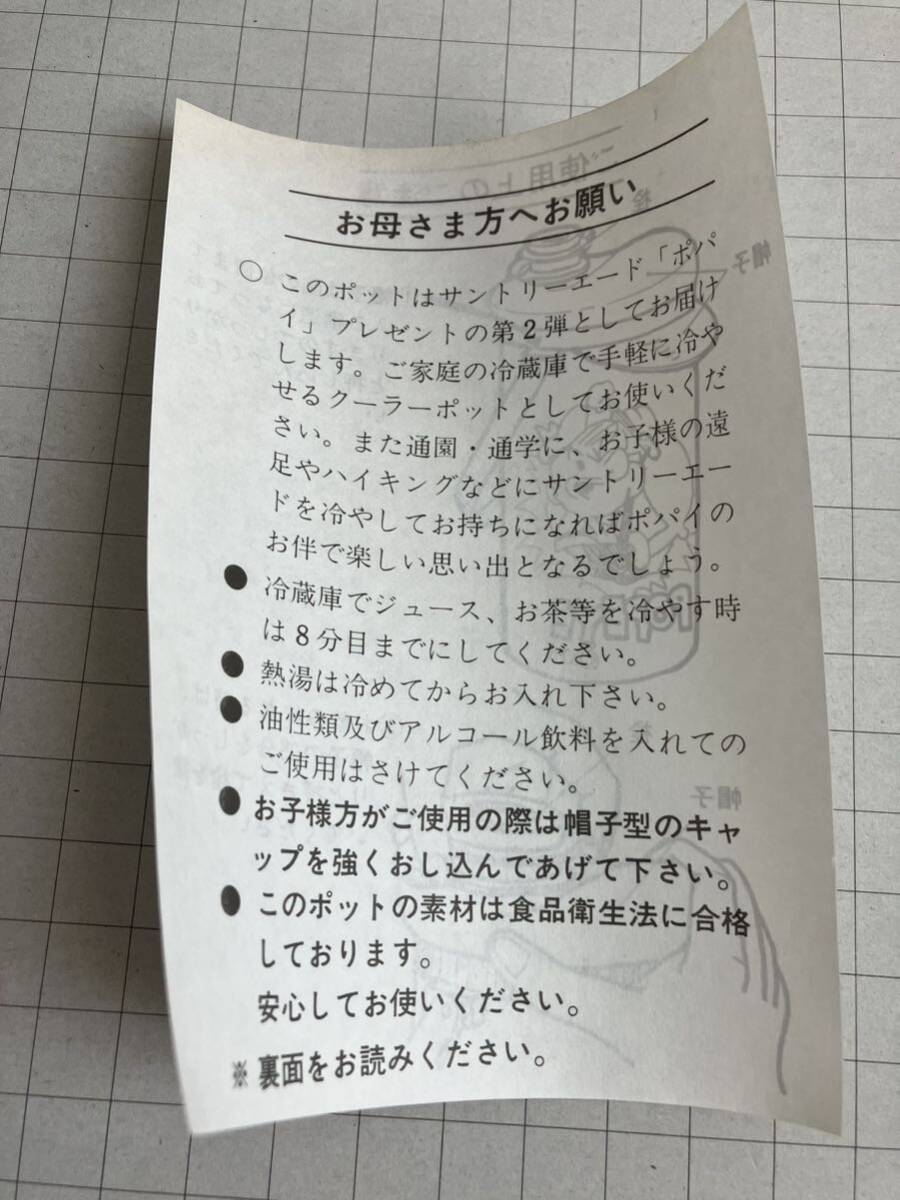 お母さま方へお願い
○ このポットはサントリーエード「ポパ
イ」プレゼントの第2弾としてお届け
します。ご家庭の冷蔵庫で手軽に冷や
せるクーラーポットとしてお使いくだ
さい。また通園・通学に、お子様の遠
足やハイキングなどにサントリーエー
ドを冷やしてお持ちになればポパイの
お伴で楽しい思い出となるでしょう。
● 冷蔵庫でジュース、お茶等を冷やす時
は8分目までにしてください。
● 熱湯は冷めてからお入れ下さい。
● 油性類及びアルコール飲料を入れての
ご使用はさけてください。
● お子様方がご使用の際は帽子型のキャ
ップを強くおし込んであげて下さい。
● このポットの素材は食品衛生法に合格
しております。
安心してお使いください。
※ 裏面をお読みください。